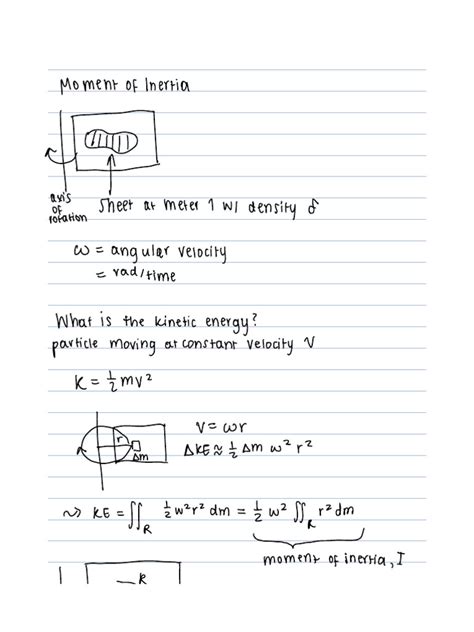 Moment of Inertia
axis
of
rotation
Sheet at meter 1 w/ density δ
ω = angular velocity
= rad/time
What is the kinetic energy?
particle moving at constant velocity V
K = 1/2 mv²
r
Δm
V = ωr
ΔKE ≈ 1/2 Δm ω² r²
⇝ KE = ∬_R 1/2 ω² r² dm = 1/2 ω² ∬_R r² dm
moment of inertia, I
R